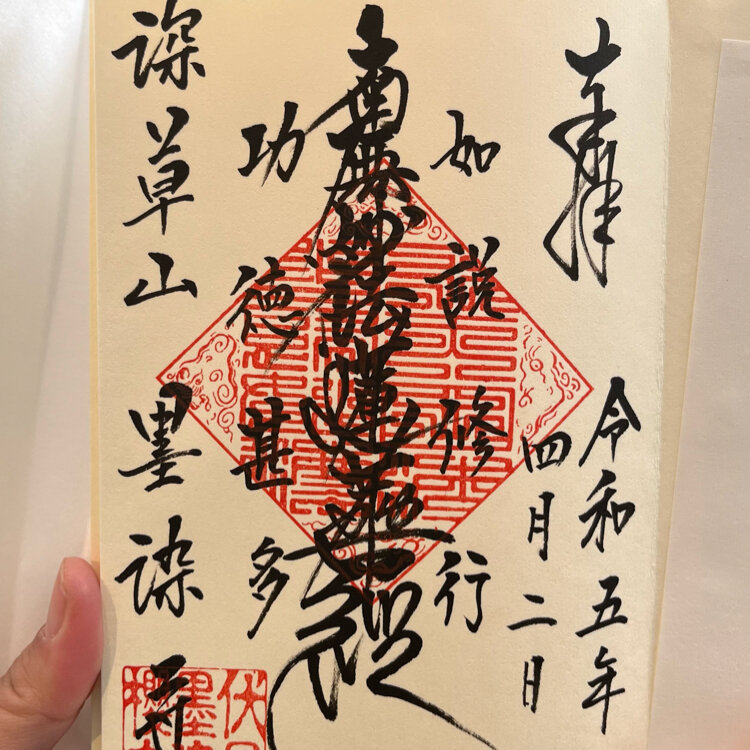 奉拝
令和五年
四月二日
如説修行
南無妙法蓮華経
功徳甚多
深草山
墨染寺